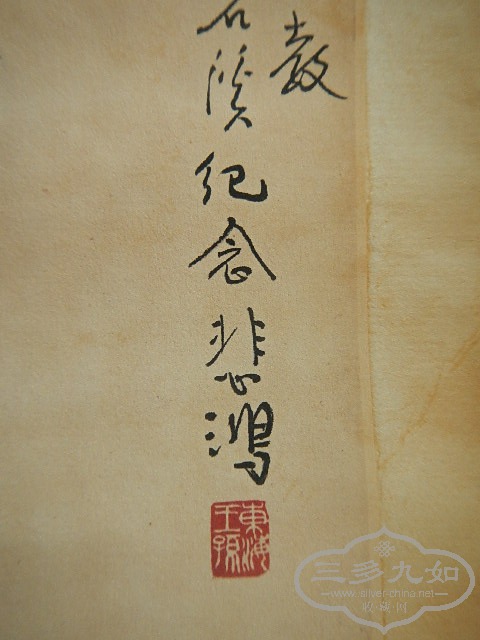 石溪紀念悲鴻
東海
王孫
三多九如
www.silver-china.net
收藏网